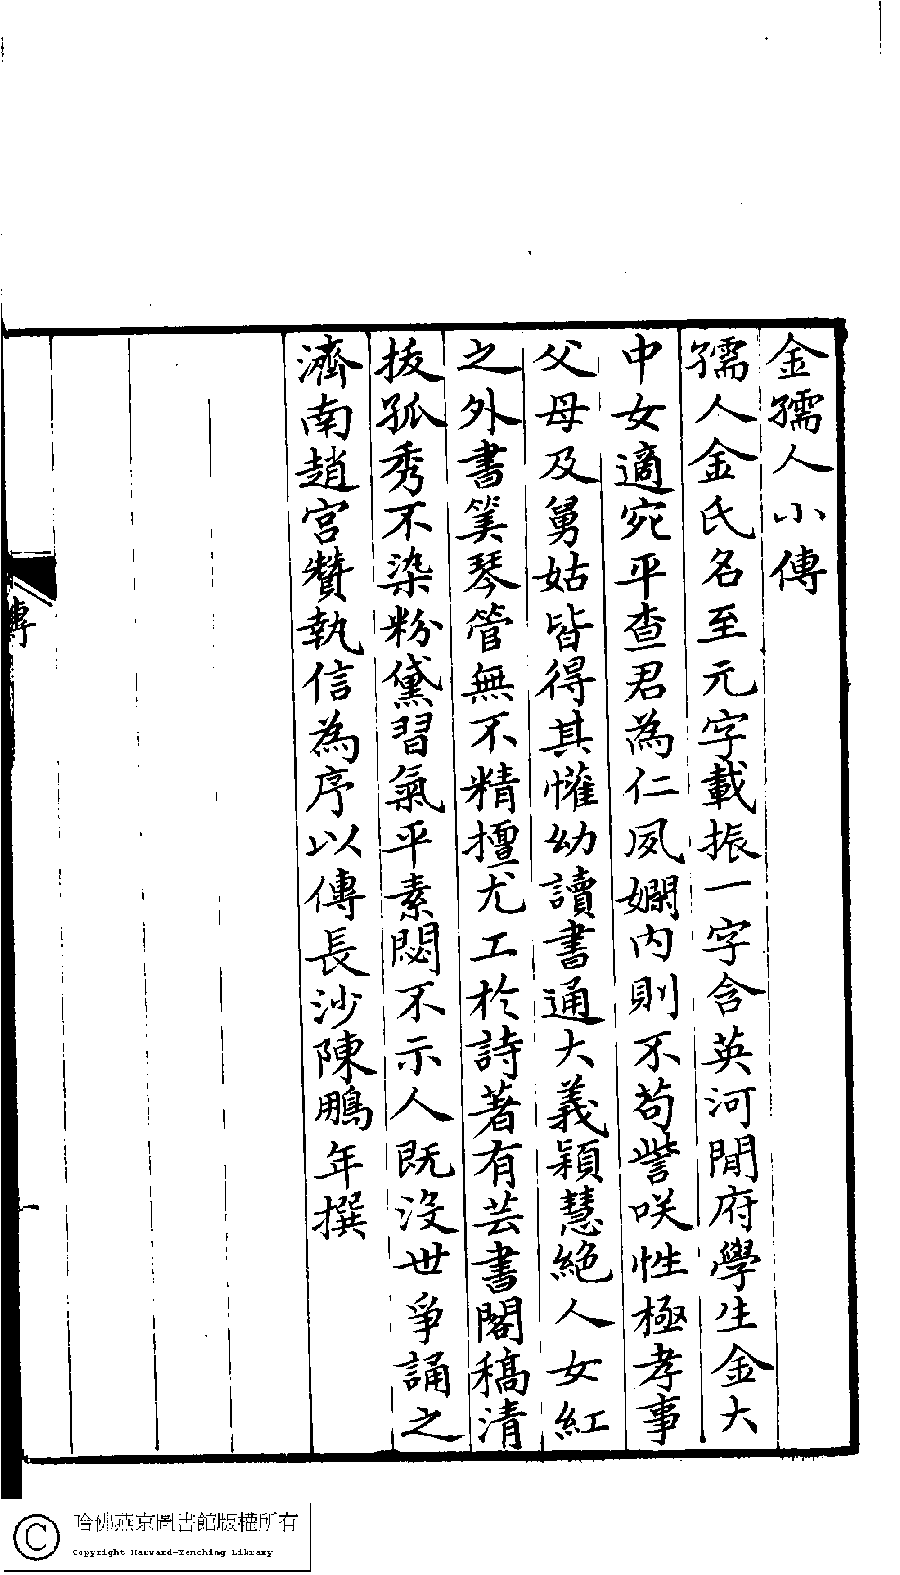 金孺人小傳
孺人金氏名至元字載振一字含英河間府學生金大
中女適宛平查君為仁夙嫻內則不苟訾咲性極孝事
父母及舅姑皆得其懽幼讀書通大義穎慧絕人女紅
之外書筭琴管無不精擅尤工於詩著有芸書閣稿清
拔孤秀不染粉黛習氣平素閟不示人既沒世爭誦之
濟南趙宮贊執信為序以傳長沙陳鵬年撰
傳
一
哈佛燕京圖書館版權所有
Copyright Harvard-Yenching Library